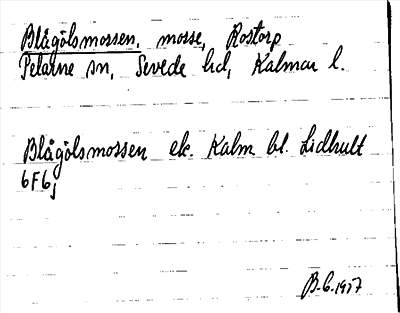 Blågölsmossen, mosse, Rostorp
Pelarne sn, Sevede hd, Kalmar l.
Blågölsmossen ek. Kalm bl. Lidhult
6F6j
B.C. 1957